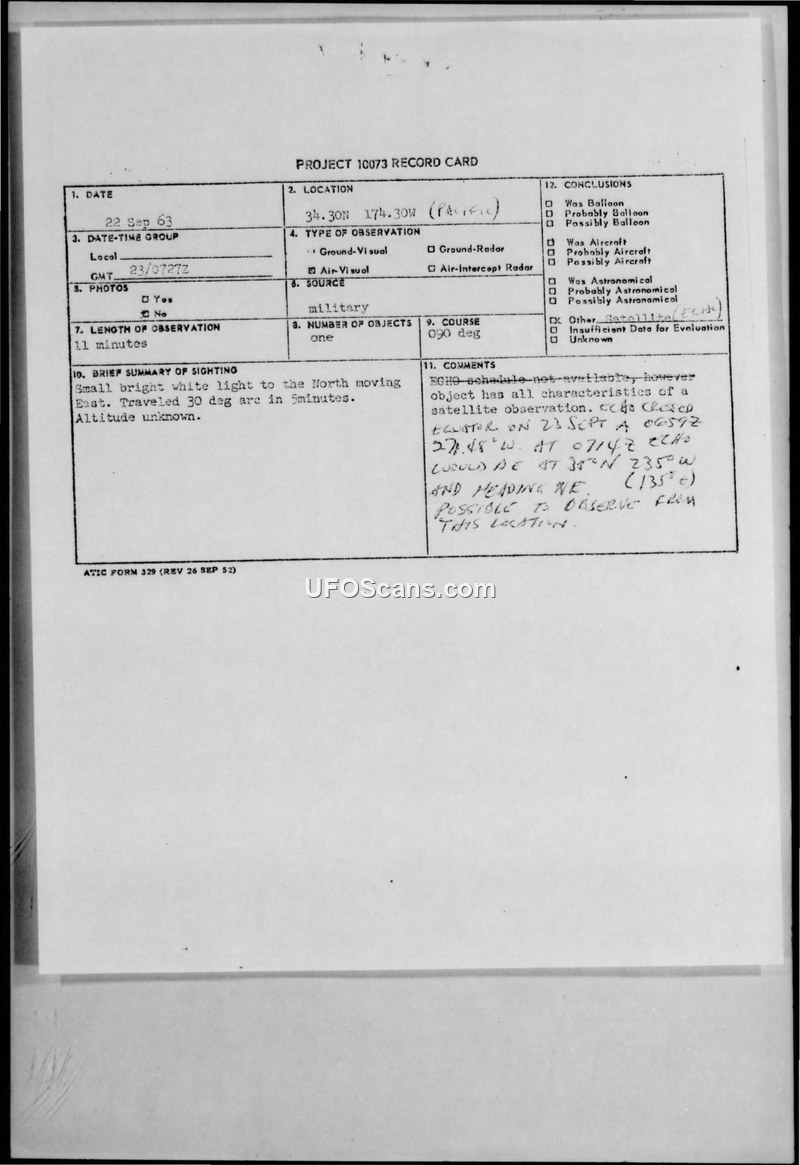 PROJECT 10073 RECORD CARD
1. DATE
22 Sep 63
2. LOCATION
34.30N 174.30W (PACIFIC)
3. DATE-TIME GROUP
Local
GMT 23/0727Z
4. TYPE OF OBSERVATION
Ground-Visual
Ground-Radar
Air-Visual
Air-Intercept Radar
5. PHOTOS
Yes
No
6. SOURCE
military
7. LENGTH OF OBSERVATION
11 minutes
8. NUMBER OF OBJECTS
one
9. COURSE
090 deg
10. BRIEF SUMMARY OF SIGHTING
Small bright white light to the North moving
East. Traveled 30 deg arc in 5minutes.
Altitude unknown.
11. COMMENTS
ECHO schedule not available, however
object has all characteristics of a
satellite observation. ECHO CROSSED
EQUATOR ON 23 SEPT A 0659Z
AT 0714Z ECHO
WOULD BE AT N 235° W
AND HEADING NE. (135° E)
POSSIBLE TO OBSERVE FROM
THIS LOCATION.
12. CONCLUSIONS
Was Balloon
Probably Balloon
Possibly Balloon
Was Aircraft
Probably Aircraft
Possibly Aircraft
Was Astronomical
Probably Astronomical
Possibly Astronomical
Other Satellite (ECHO)
Insufficient Data for Evaluation
Unknown
ATIC FORM 329 (REV 26 SEP 52)
UFOScans.com